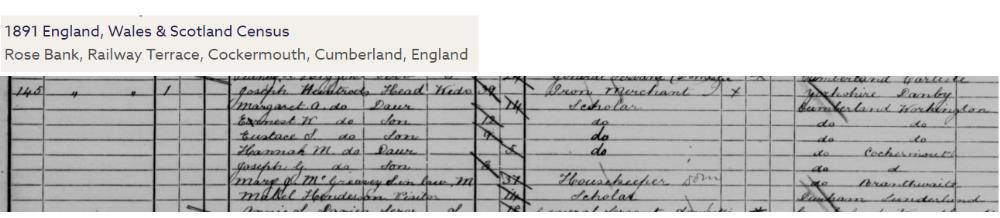 1891 England, Wales & Scotland Census
Rose Bank, Railway Terrace, Cockermouth, Cumberland, England
General Servant Cumberland Carlisle
145 " " 1 Joseph Huntrods Head Widr 39 Iron Merchant X Yorkshire Danby
Margaret A. do Daur 14 Scholar Cumberland Workington
Earnest W do Son 12 do do do
Eustace S. do Son 9 do do do
Hannah M. do Daur 5 do do Cockermouth
Joseph G do Son do
Mary J. Mc M Housekeeper dom do Branthwaite
Mabel Henderson Visitor Scholar Durham Sunderland
Annie General Servant